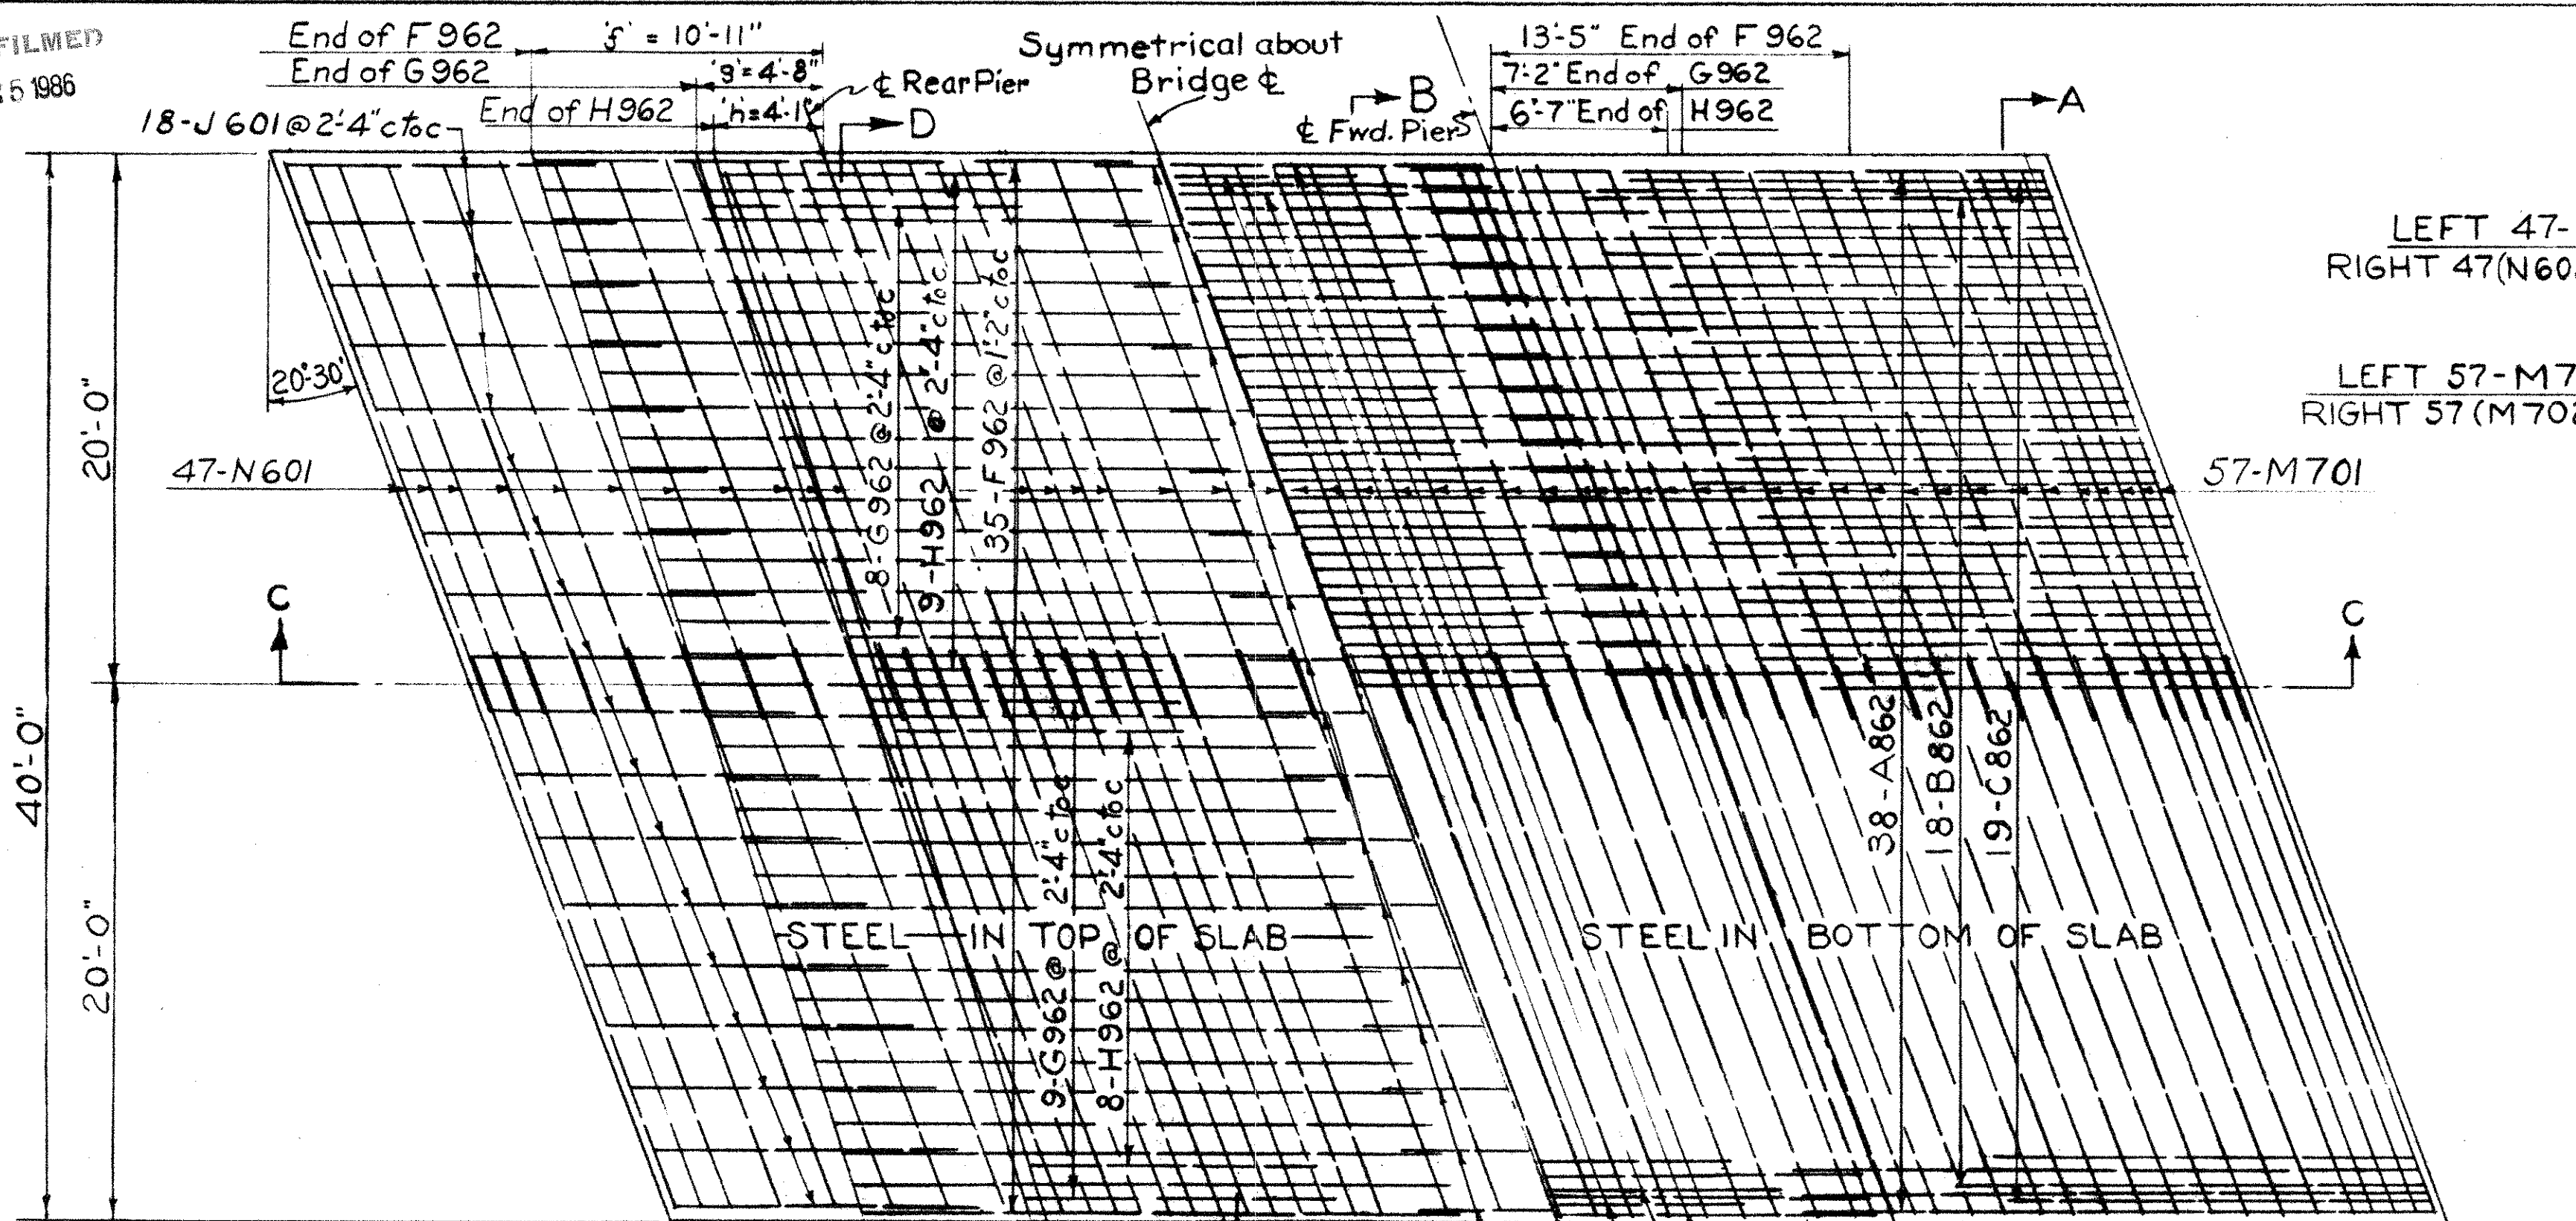 FILMED
5 1986
End of F962
'f' = 10'-11"
End of G962
'g'=4'-8"
End of H962
'h'=4'-1"
℄ Rear Pier
18-J601@2'-4" ctoc
D
Symmetrical about
Bridge ℄
B
℄ Fwd. Pier
13'-5" End of F962
7'-2" End of G962
6'-7" End of H962
A
LEFT 47-
RIGHT 47(N60
LEFT 57-M7
RIGHT 57(M702
20°30'
20'-0"
40'-0"
20'-0"
47-N601
57-M701
8-G962@2'-4" ctoc
9-H962 @2'-4" ctoc
35-F962@1'-2" ctoc
C
C
38-A862
18-B862
19-C862
9-G962@2'-4" ctoc
8-H962@2'-4" ctoc
STEEL IN TOP OF SLAB
STEEL IN BOTTOM OF SLAB